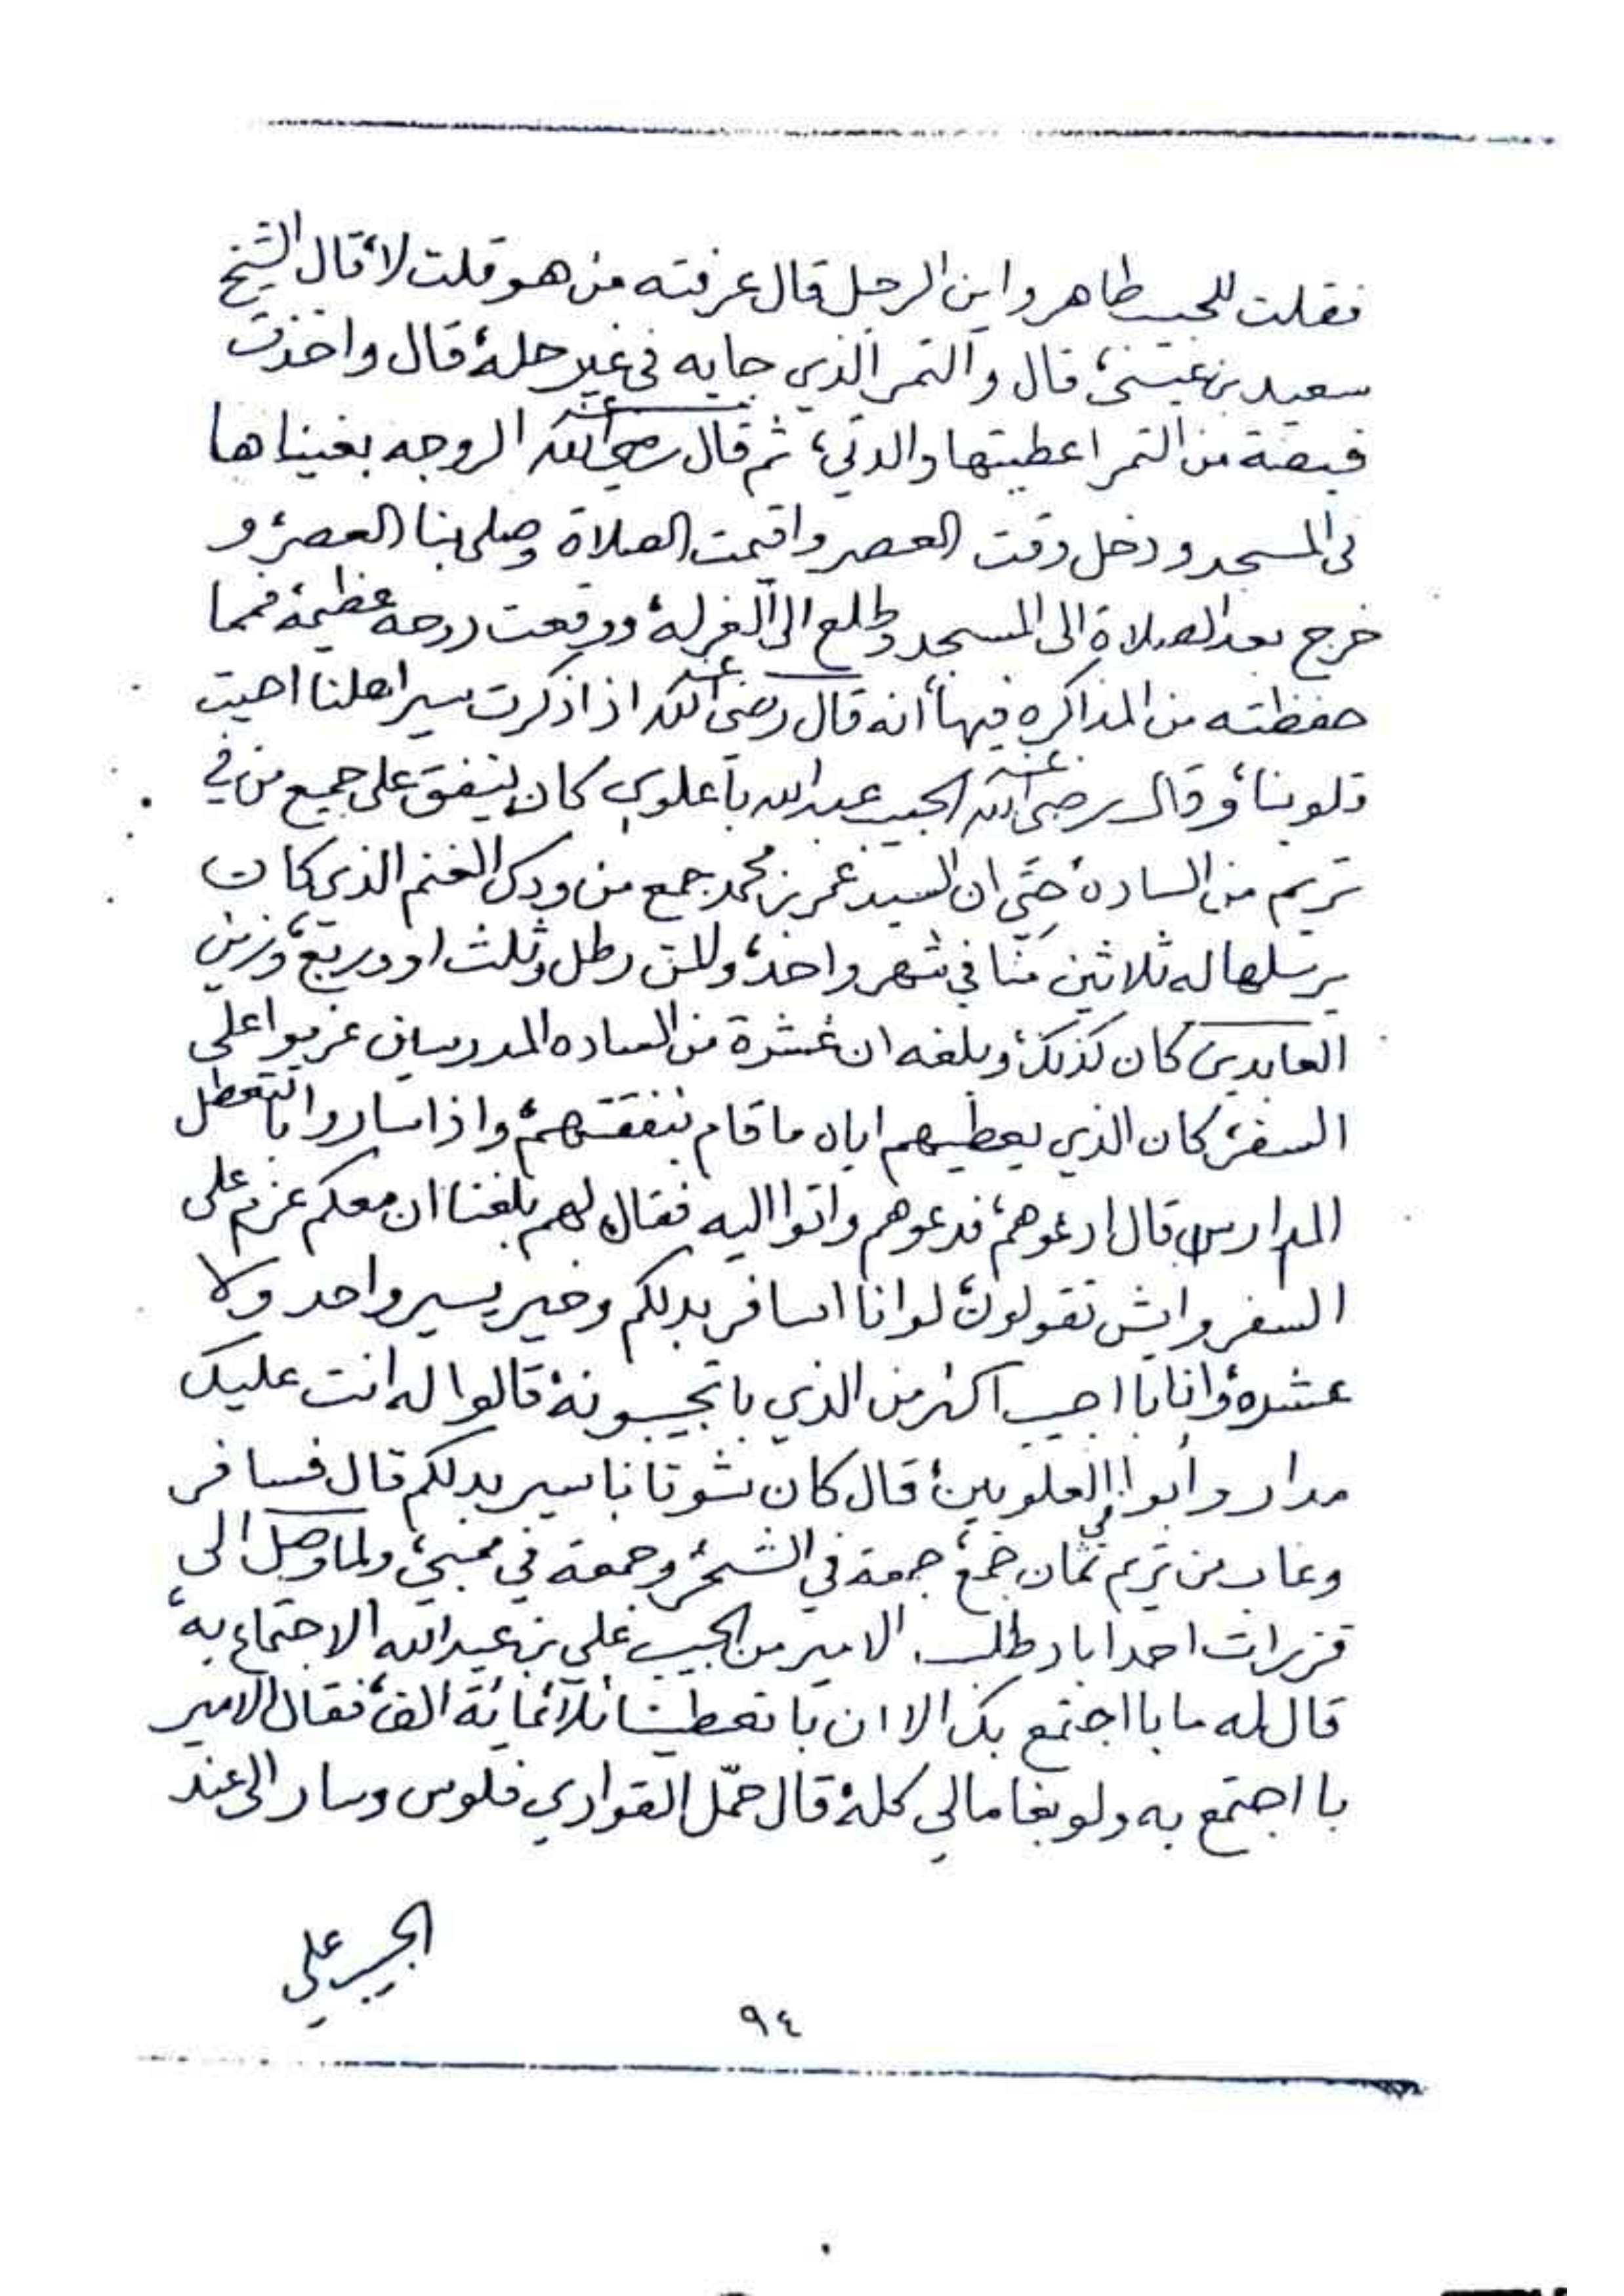 فقلت للحبيب طاهر واين الرجل قال عرفته من هو قلت لا، قال الشيخ
سعيد بن عيسى، قال والتمر الذي جابه في غير حله، قال واخذت
قبضة من التمر اعطيتها والدتي، ثم قال رضي الله عنه الروحه بغيناها
في المسجد ودخل وقت العصر واقيمت الصلاة وصلى بنا العصر، و
خرج بعد الصلاة الى المسجد وطلع الى الغزلة، ووقعت روحه عظيمة، فمما
حفظته من المذاكره فيها، انه قال رضي الله عنه اذا ذكرت سير اهلنا احيت
قلوبنا، وقال رضي الله عنه الحبيب عبدالله باعلوي كان ينفق على جميع من في
تريم من الساده، حتى ان السيد عمر بن محمد جمع من ودك الغنم الذي كان
يرسلها له ثلاثين منّا في شهر واحد، والمن رطل وثلث او وربع، وزين
العابدين كان كذلك، وبلغه ان عشرة من الساده المدرسين عزموا على
السفر، كان الذي يعطيهم اياه ما قام بنفقتهم، واذا ساروا باتتعطل
المدارس قال ادعوهم، فدعوهم واتوا اليه فقال لهم بلغنا ان معكم عزم على
السفر وايش تقولون، لو انا اسافر بدلكم وخير يسير واحد ولا
عشره، وانا با اجيب اكثر من الذي باتجيبونه، قالوا له انت عليك
مدار وأبوا العلويين، قال كان شوتانا سير بدلكم قال فسافر
وغاب من تريم ثمان جمع، جمعة في الشحر، وجمعة في ممبي، ولما وصل الى
قزرات احمد اباد طلب الامير من الحبيب علي بن عبدالله الاجتماع به،
قال له ما با اجتمع بك الا ان با تعطينا ثلاثمائة الف، فقال الامير
با اجتمع به ولو بغا مالي كله، قال حمّل القواري فلوس وسار الى عند
الحبيب علي
٩٤